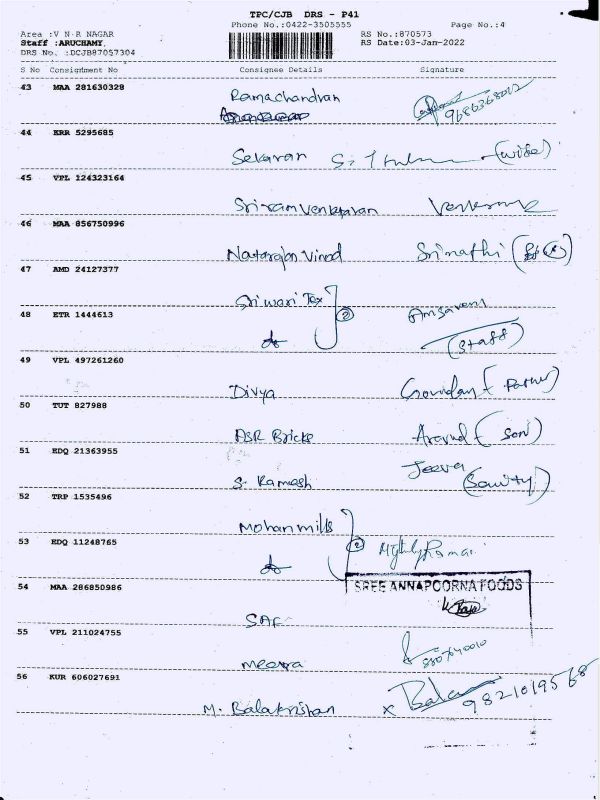 TPC/CJB DRS - P41
Phone No.:0422-3505555 Page No.:4
Area :V N R NAGAR RS No.:870573
Staff :ARUCHAMY. RS Date:03-Jan-2022
DRS No. :DCJB87057304
S No Consignment No Consignee Details Signature
43 MAA 281630328
Ramachandran 9686368012
44 KRR 5295685
Sekaran (wife)
45 VPL 124323164
Sriram Venkataran
46 MAA 856750996
Natarajan Vinod Srimathi
47 AMD 24127377
Sriwari Tex 2
48 ETR 1444613
(staff)
49 VPL 497261260
Divya Govindan
50 TUT 827988
ASR Bricks Aravind (son)
51 EDQ 21363955
S. Ramesh Jeeva
52 TRP 1535496
Mohan mills 2
53 EDQ 11248765
SREE ANNAPOORNA FOODS
54 MAA 286850986
SAF
55 VPL 211024755
Meera
56 KUR 606027691
M. Balakrishan x Bala 9821019568